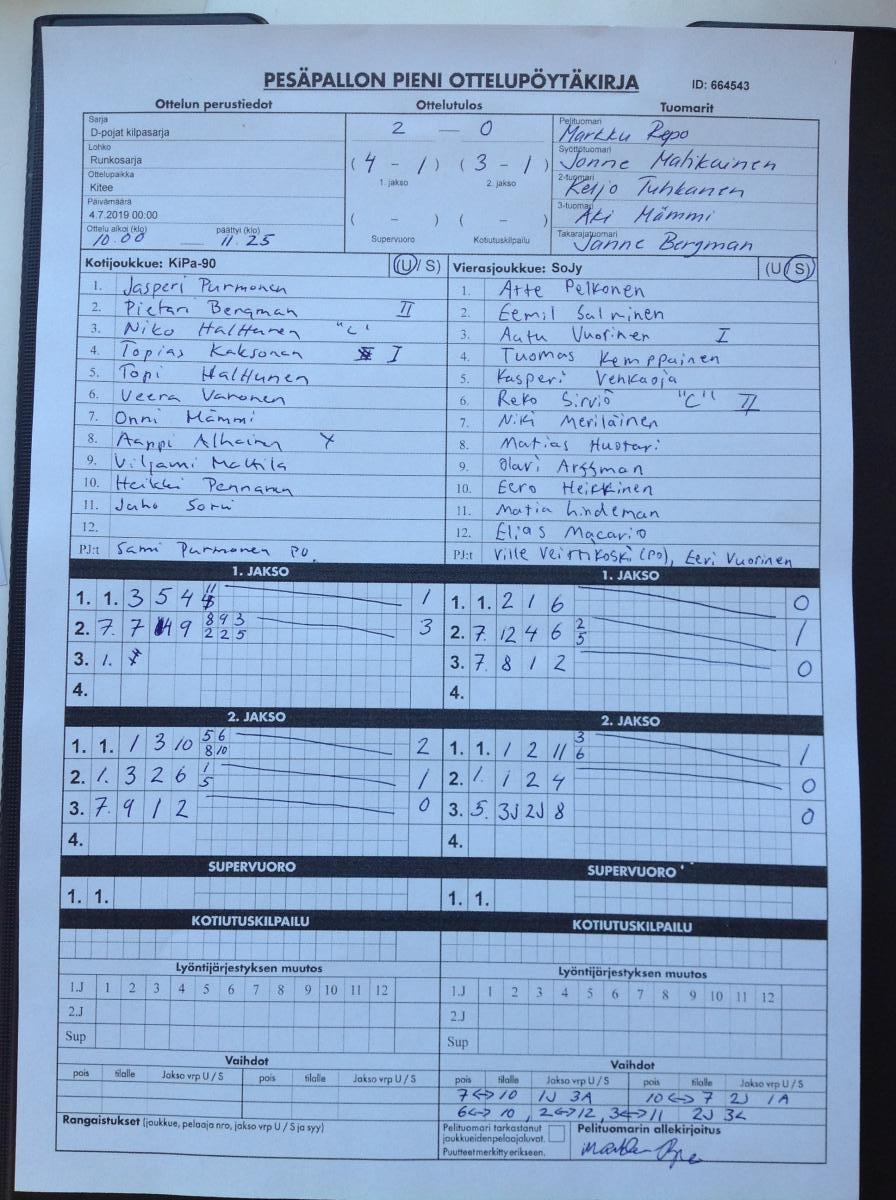 PESÄPALLON PIENI OTTELUPÖYTÄKIRJA ID: 664543
Ottelun perustiedot Ottelutulos Tuomarit
Sarja
D-pojat kilpasarja
Lohko
Runkosarja
Ottelupaikka
Kitee
Päivämäärä
4.7.2019 00:00
Ottelu alkoi (klo) päättyi (klo)
10.00 11.25
2 — 0
(4 - 1) (3 - 1)
1. jakso 2. jakso
( - ) ( - )
Supervuoro Kotiutuskilpailu
Pelituomari
Markku Repo
Syöttötuomari
Jonne Matikainen
2-tuomari
Keijo Tuhkanen
3-tuomari
Aki Mämmi
Takarajatuomari
Janne Bergman
Kotijoukkue: KiPa-90 (U/ S)
1. Jasperi Purmonen
2. Pietari Bergman II
3. Niko Halttunen "C"
4. Topias Kaksonen I
5. Topi Halttunen
6. Veera Varonen
7. Onni Mämmi
8. Aappi Alhainen
9. Viljami Mattila
10. Heikki Pennanen
11. Juho
12.
PJ:t Sami Purmonen PO
Vierasjoukkue: SoJy (U/ S)
1. Atte Pelkonen
2. Eemil Salminen
3. Aatu Vuorinen I
4. Tuomas Kemppainen
5. Kasperi Venkaoja
6. Reko Sirviö "C" II
7. Niki Meriläinen
8. Matias Huotari
9. Olavi Arffman
10. Eero Heikkinen
11. Matia Lindeman
12. Elias Macario
PJ:t Ville Veittikoski (PO), Eeri Vuorinen
1. JAKSO
1. 1. 3 5 4 1
2. 7. 7 4 9 8 9 3 3
2 2 5
3. 1.
4.
1. JAKSO
1. 1. 2 1 6 0
2. 7. 12 4 6 2 1
5
3. 7. 8 1 2 0
4.
2. JAKSO
1. 1. 1 3 10 5 6 2
8 10
2. 1. 3 2 6 1 1
5
3. 7. 9 1 2 0
4.
2. JAKSO
1. 1. 1 2 11 3 1
6
2. 1. 1 2 4 0
3. 5. 3J 2J 8 0
4.
SUPERVUORO
1. 1.
SUPERVUORO
1. 1.
KOTIUTUSKILPAILU
KOTIUTUSKILPAILU
Lyöntijärjestyksen muutos
1.J 1 2 3 4 5 6 7 8 9 10 11 12
2.J
Sup
Lyöntijärjestyksen muutos
1.J 1 2 3 4 5 6 7 8 9 10 11 12
2.J
Sup
Vaihdot
pois tilalle Jakso vrp U / S pois tilalle Jakso vrp U / S
Vaihdot
pois tilalle Jakso vrp U / S pois tilalle Jakso vrp U / S
7 <-> 10 1J 3A 10 <-> 7 2J 1A
6 <-> 10, 2 <-> 12, 3 <-> 11 2J 3L
Rangaistukset (joukkue, pelaaja nro, jakso vrp U / S ja syy)
Pelituomari tarkastanut
joukkueidenpelaajaluvat.
Puutteetmerkitty erikseen.
Pelituomarin allekirjoitus